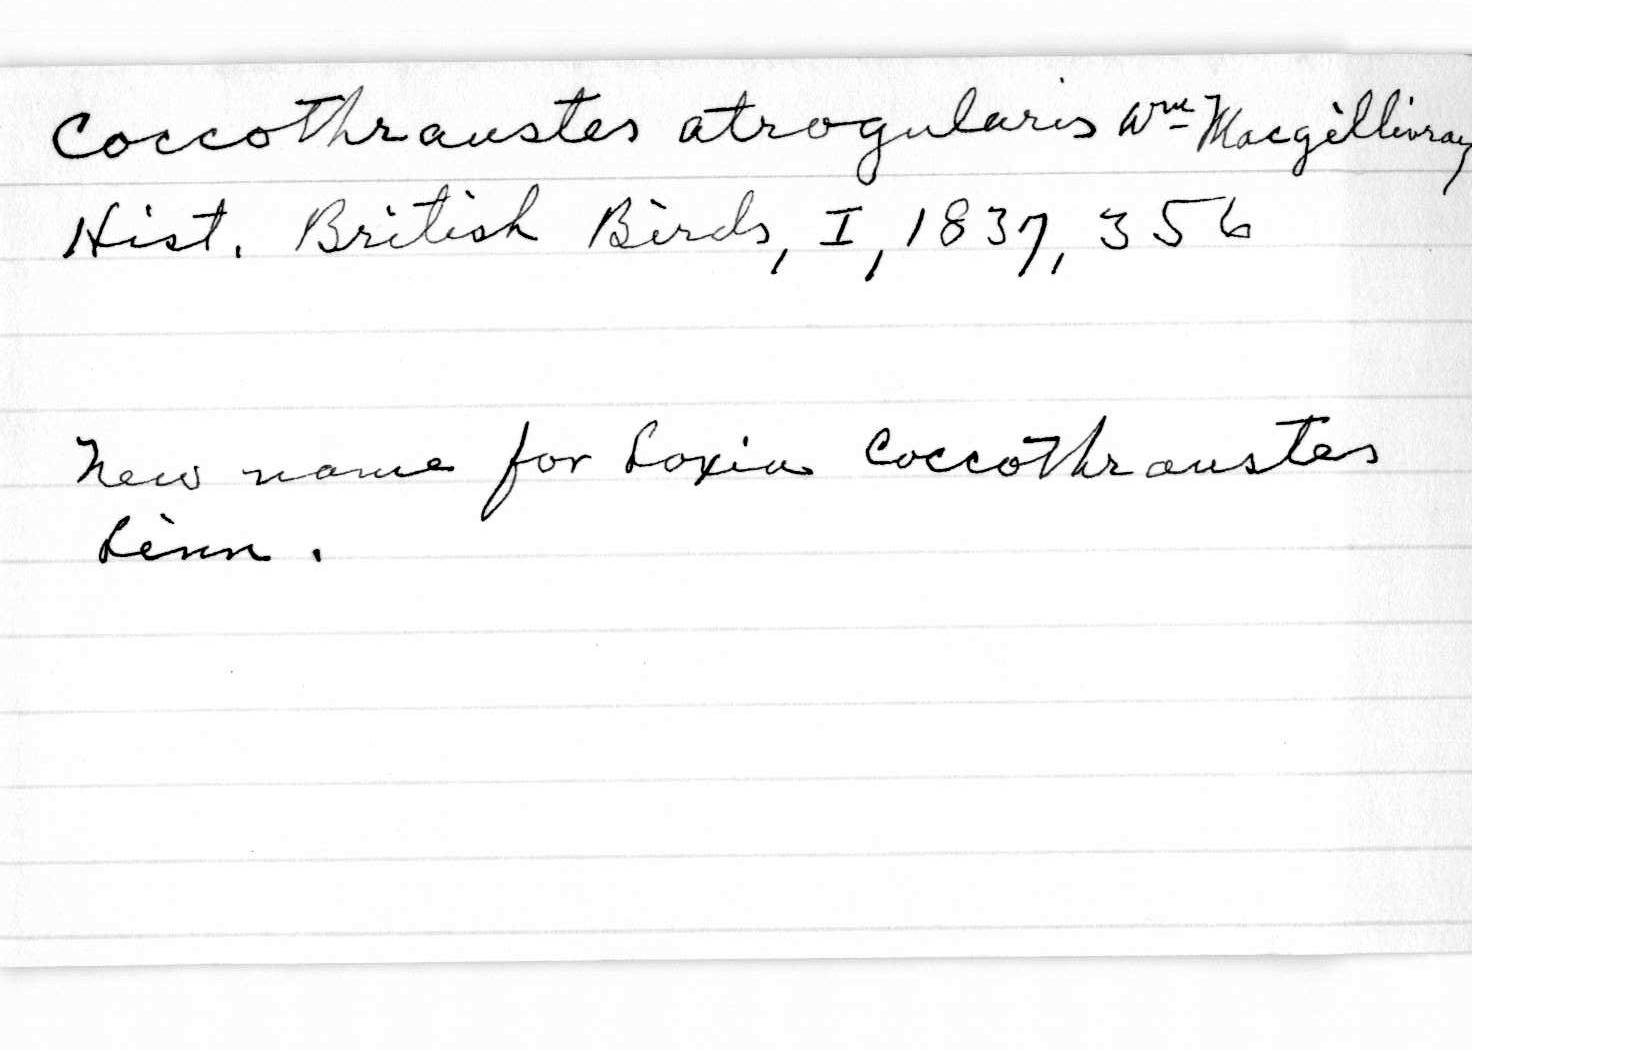 Coccothraustes atrogularis Wm Macgillivray
Hist. British Birds, I, 1837, 356
New name for Loxia Coccothraustes
Linn.